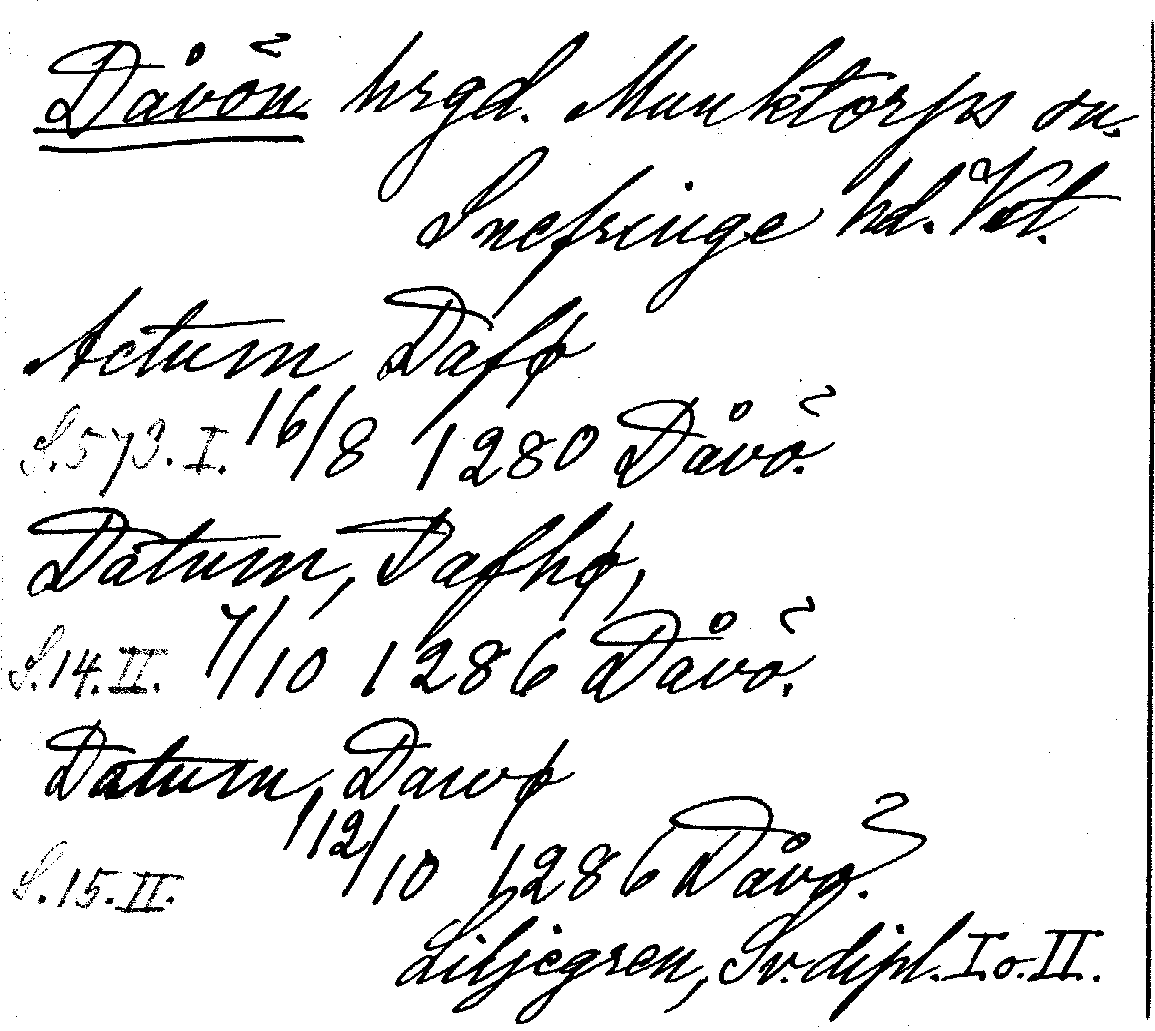 Dåvön hrgd. Munktorps sn.
Snefringe hd. Vstm.
Actum Dafø
S. 573. I. 16/8 1280 Dåvö.
Datum, Dafhø,
S. 14. II. 7/10 1286 Dåvö.
Datum, Dawø
S. 15. II. 12/10 1286 Dåvö.
Liljegren, Sv. dipl. I o. II.